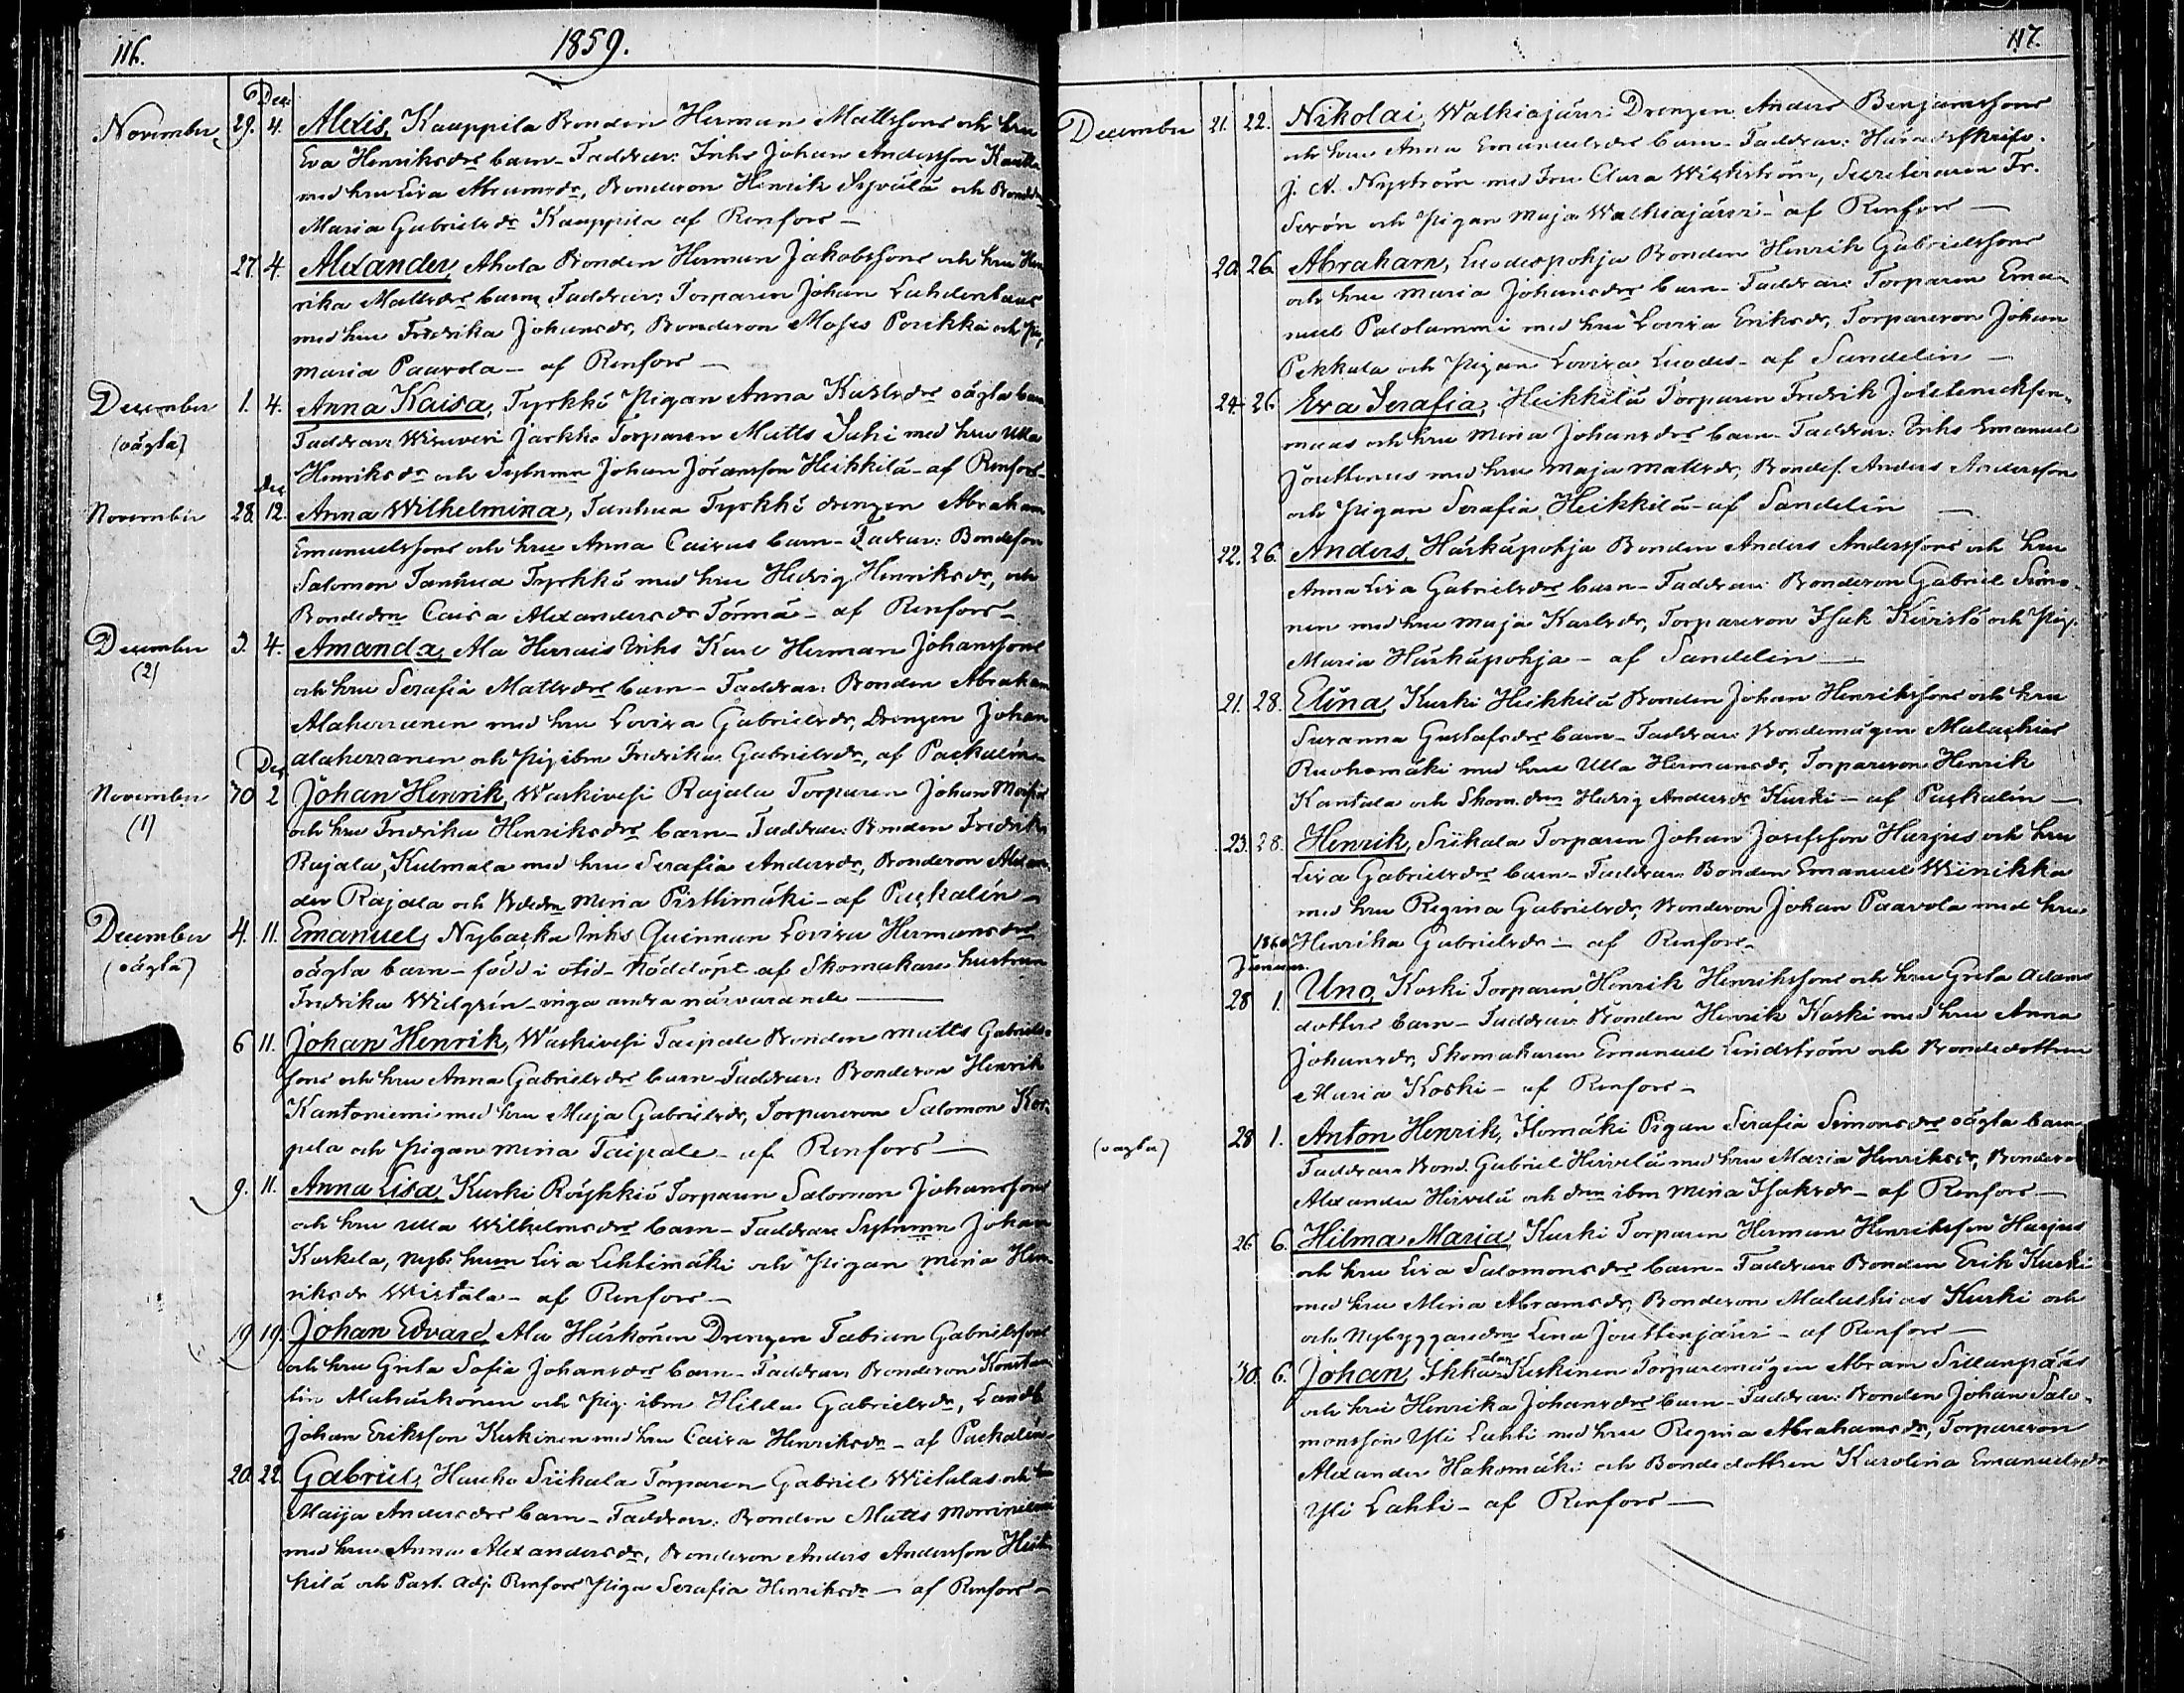 116.
1859.
Dec:
November 29. 4. Alexis, Kauppila Bonden Herman Mattssons och hru
Eva Henriksdrs barn - Faddrar: Inhs Johan Andersson
med hru Lisa Abramsdr, Bondeson Henrik Syvälä och
Maria Gabrielsdr Kauppila af Renfors -
27. 4 Alexander, Ahola Bonden Herman Jakobssons och hru Hen
rika Mattsdrs barn, Faddrar: Torparen Johan Lahdentaus
med hru Fredrika Johansdr, Bondeson Moses Porikka och
Maria Paavola - af Renfors -
December 1. 4. Anna Kaisa, Tyrkkö Pigan Anna Karlsdrs oägta barn
(oägta) Faddrar: Wirnveri Jaakko Torparen Matts Suhi med hru Ulla
Henriksdr och Sytning Johan Jöransson Heikkilä - af Renfors -
Dec
November 28. 12. Anna Wilhelmina, Tanhua Tyrkkö drengen Abraham
Emanuelssons och hru Anna Caisas barn - Fadrar: Bondeson
Salomon Tanhua Tyrkkö med hru Hedvig Henriksdr, och
Bondedrn Caisa Alexandersdr Törmä - af Renfors -
December 3. 4. Amanda, Ala Herrais Inhs Karl Herman Johanssons
(2) och hru Serafia Mattsdrs barn - Faddrar: Bonden Abraham
Alaherranen med hru Lovisa Gabrielsdr, Drengen Johan
Alaherranen och Pig. ibm Fredrika Gabrielsdr, af Paskalin -
Dec
November 30 2 Johan Henrik, Waskivesi Rajala Torparen Johan
(1) och hru Fredrika Henriksdrs barn - Faddrar: Bonden Fredrik
Rajala, Kulmala med hru Serafia Andersdr, Bondeson Alexan
der Rajala och Bdedrn Mina Pirttimäki - af Paskalin -
December 4. 11. Emanuel, Nybacka Inhs Quinnan Lovisa Hermansdrs
(oägta) oägta barn - född i otid - Nöddöpt af Skomakare hustrun
Fredrika Widgrén - inga andra närvarande -
6 11. Johan Henrik, Waskivesi Taipale Bonden Matts Gabriels-
sons och hru Anna Gabrielsdrs barn - Faddrar: Bondeson Henrik
Kantoniemi med hru Maja Gabrielsdr, Torpareson Salomon Kor-
pela och Pigan Mina Taipale - af Renfors -
9. 11. Anna Lisa, Kurki Röyhkiö Torparen Salomon Johanssons
och hru Ulla Wilhelmsdrs barn - Faddrar: Sytningm Johan
Kaskela, Nyb: hrun Lisa Lehtimäki och Pigan Mina Hen
riksdr Wistala - af Renfors -
19 19. Johan Edvard, Ala Härkönen Drengen Fabian Gabrielssons
och hru Greta Sofia Johansdrs barn - Faddrar: Bondeson Konstan
tin Alahärkönen och Pig. ibm Hilda Gabrielsdr, Landb
Johan Eriksson Keskinen med hru Caisa Henriksdr - af Paskalin
20. 22. Gabriel, Hauho Siikala Torparen Gabriel Wiitalas och hru
Maija Andersdrs barn - Faddrar: Bonden Matts Monninelmi
med hru Anna Alexandersdr, Bondeson Anders Andersson Heik
kilä och Past. Adj. Renfors Piga Serafia Henriksdr - af Renfors -
117.
December 21. 22. Nikolai, Walkiajärvi Drengen Anders Benjamssons
och hru Anna Emanuelsdrs barn - Faddrar: Häradsskrifv.
J. A. Nyström med Fru Clara Wichström, Secreteraren Fr.
Serén och Pigan Maja Walkiajärvi - af Renfors -
20. 26. Abraham, Luodespohja Bonden Henrik Gabrielssons
och hru Maria Johansdrs barn - Faddrar: Torparen Ema-
nuel Palolammi med hru Lovisa Eriksdr, Torpareson Johan
Pekkala och Pigan Lovisa Luodes - af Sandelin -
24 26. Eva Serafia, Heikkilä Torparen Fredrik
och hru Mina Johansdrs barn - Faddrar: Inhs Emanuel
Jouttenus med hru Maja Mattsdr, Bondes. Anders Andersson
och Pigan Serafia Heikkilä - af Sandelin -
22. 26. Anders, Härkäpohja Bonden Anders Anderssons och hru
Anna Lisa Gabrielsdrs barn - Faddrar: Bondeson Gabriel Simo-
nen med hru Maja Karlsdr, Torpareson Isak Kivistö och Pig.
Maria Härkäpohja - af Sandelin -
21. 28. Elina, Kurki Heikkilä Bonden Johan Henrikssons och hru
Susanna Gustafsdrs barn - Faddrar: Bondemågen Malachias
Ruohomäki med hru Ulla Hermansdr, Torpareson Henrik
Kantala och Skom. drn Hedvig Andersdr Kurki - af Paskalin -
23. 28. Henrik, Siikala Torparen Johan Josefsson Harjus och hru
Lisa Gabrielsdrs barn - Faddrar: Bonden Emanuel Wiinikka
med hru Regina Gabrielsdr, Bondeson Johan Paavola med hru
1860 Henrika Gabrielsdr - af Renfors -
Januar.
28 1. Uno, Koski Torparen Henrik Henrikssons och hru Greta Adams
dotters barn - Faddrar: Bonden Henrik Koski med hru Anna
Johansdr, Skomakaren Emanuel Lindström och Bondedottren
Maria Koski - af Renfors -
(oägta) 28 1. Anton Henrik, Homäki Pigan Serafia Simonsdrs oägta barn
Faddrar: Bond. Gabriel Hirvelä med hru Maria Henriksdr, Bondeson
Alexander Hirvelä och drn ibm Mina Isaksdr - af Renfors -
26 6. Hilma Maria, Kurki Torparen Herman Henriksson Harjus
och hru Lisa Salomonsdrs barn - Faddrar: Bonden Erik Kurki
med hru Mina Abramsdr, Bondeson Malachias Kurki och
och Nybyggaredrn Lena Jouttenjärvi - af Renfors -
30. 6. Johan, Ikkala Keskinen Torparemågen Abram Sillanpääs
och hru Henrika Johansdrs barn - Faddrar: Bonden Johan Salo-
monsson Yli Lahti med hru Regina Abrahamsdr, Torpareson
Alexander Hakomäki och Bondedottren Karolina Emanuelsdr
Yli Lahti - af Renfors -